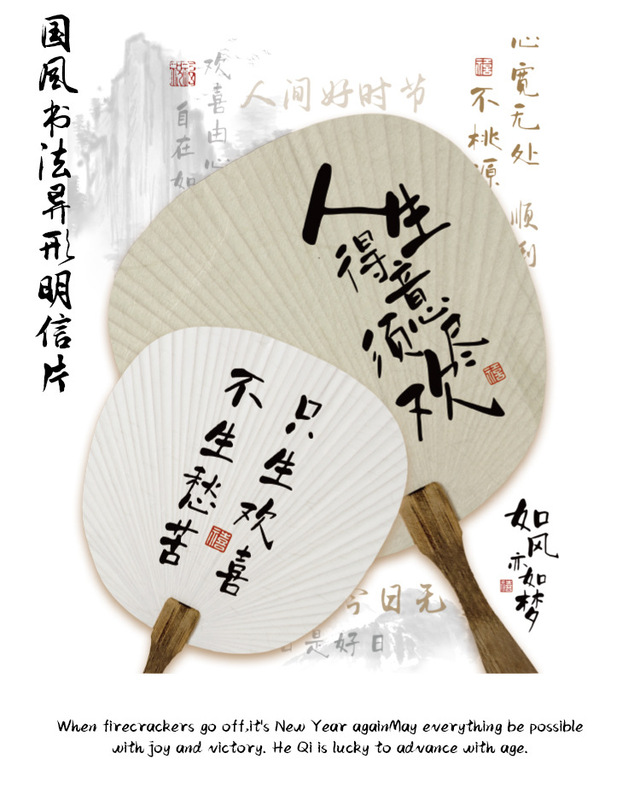 国风书法异形明信片
欢喜由心
自在如
人间好时节
心宽无处
不桃源
顺利
人生
得意
须尽
欢
禧
只生欢喜
不生愁苦
禧
如风
亦如梦
今日无
是好日
When firecrackers go off,it's New Year againMay everything be possible
with joy and victory. He Qi is lucky to advance with age.